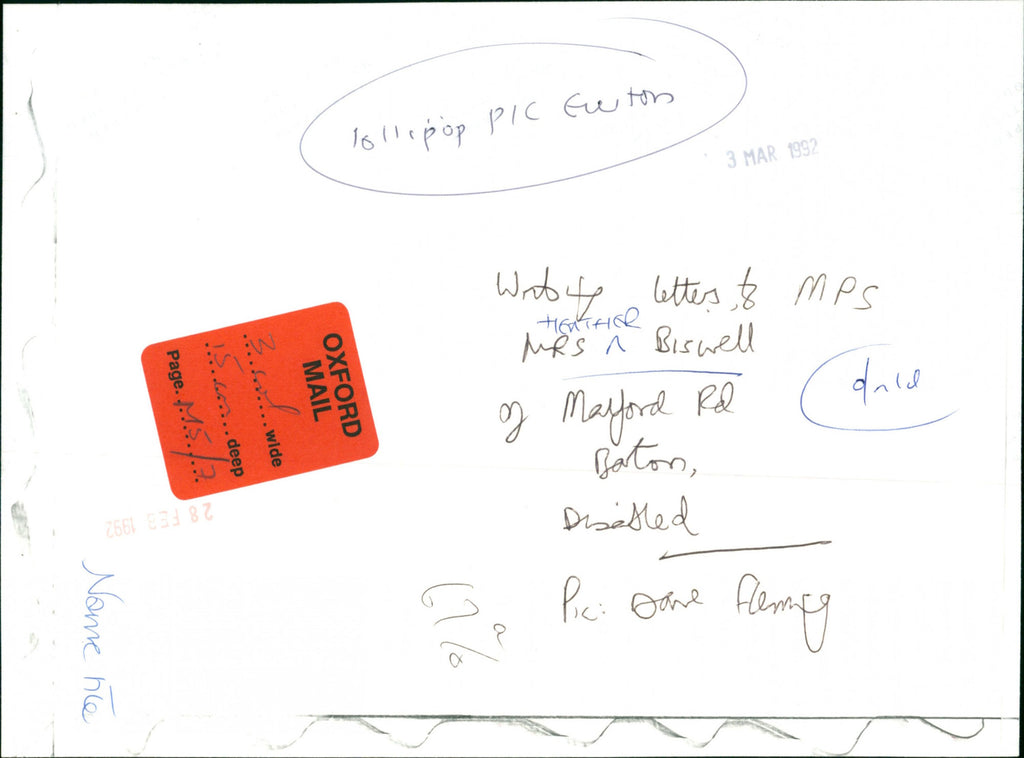 lollipop PIC
3 MAR 1992
letters to MPS
HEATHER
MRS ^ Biswell
of Masford Rd
Disabled
Pic: Dave Fleming
OXFORD
MAIL
3 col wide
15 cm deep
Page. M5/7
28 FEB 1992
67%
Name file